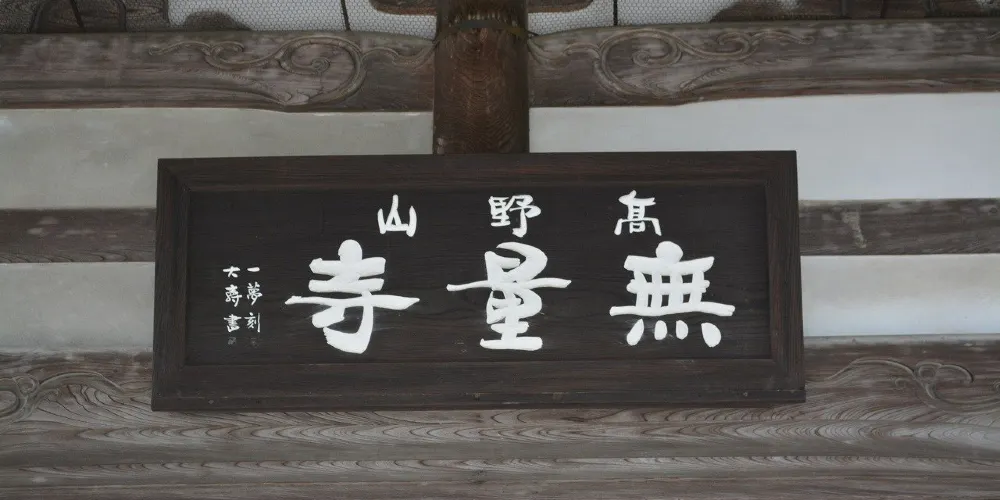 髙野山
無量寺
一夢刻
大壽書